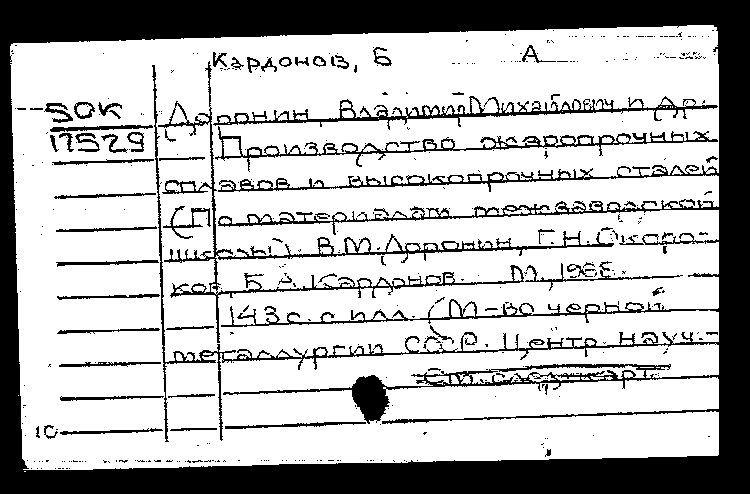 Кардонов, Б А
50К Доронин, Владимир Михайлович и др.
17529 Производство жаропрочных
сплавов и высокопрочных сталей
(По материалам межзаводской
школы). В.М. Доронин, Г.Н. Окоро-
ков, Б.А. Кардонов. М.,
143 с. с илл. (М-во черной
металлургии СССР. Центр. науч.-
См. след. карт.
10